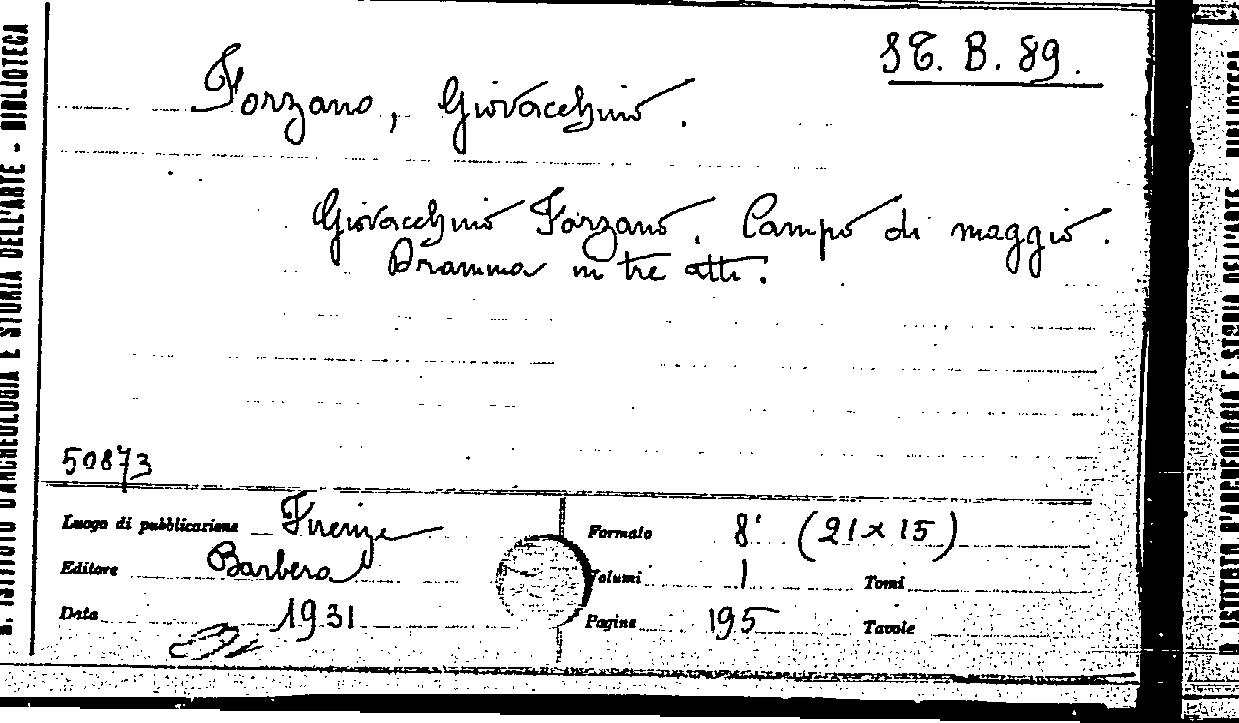 R. ISTITUTO D'ARCHEOLOGIA E STORIA DELL'ARTE - BIBLIOTECA
ST. B. 89.
Forzano, Giovacchino.
Giovacchino Forzano. Campo di maggio.
Dramma in tre atti.
50873
Luogo di pubblicazione Firenze
Editore Barbera
Data 1931
Formato 8° (21 x 15)
Volumi 1 Tomi
Pagine 195 Tavole
R. ISTITUTO D'ARCHEOLOGIA E STORIA DELL'ARTE BIBLIOTECA